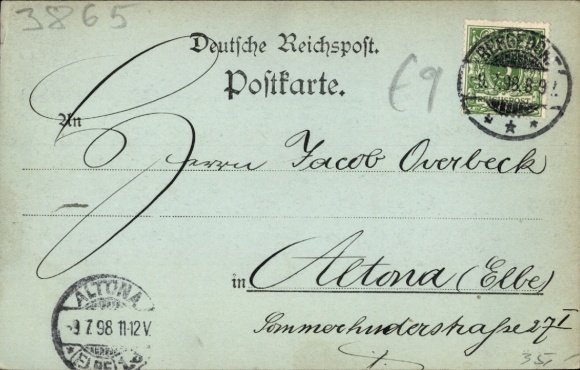 3865
Deutsche Reichspost.
Postkarte.
€9
BERGEDORF
9.7.98.8-9V.
An
Herrn Jacob Overbeck
in Altona (Elbe)
Sommerhuderstraße 27 I
ALTONA
-9.7.98 11-12V.
*(ELBE)1
35,-